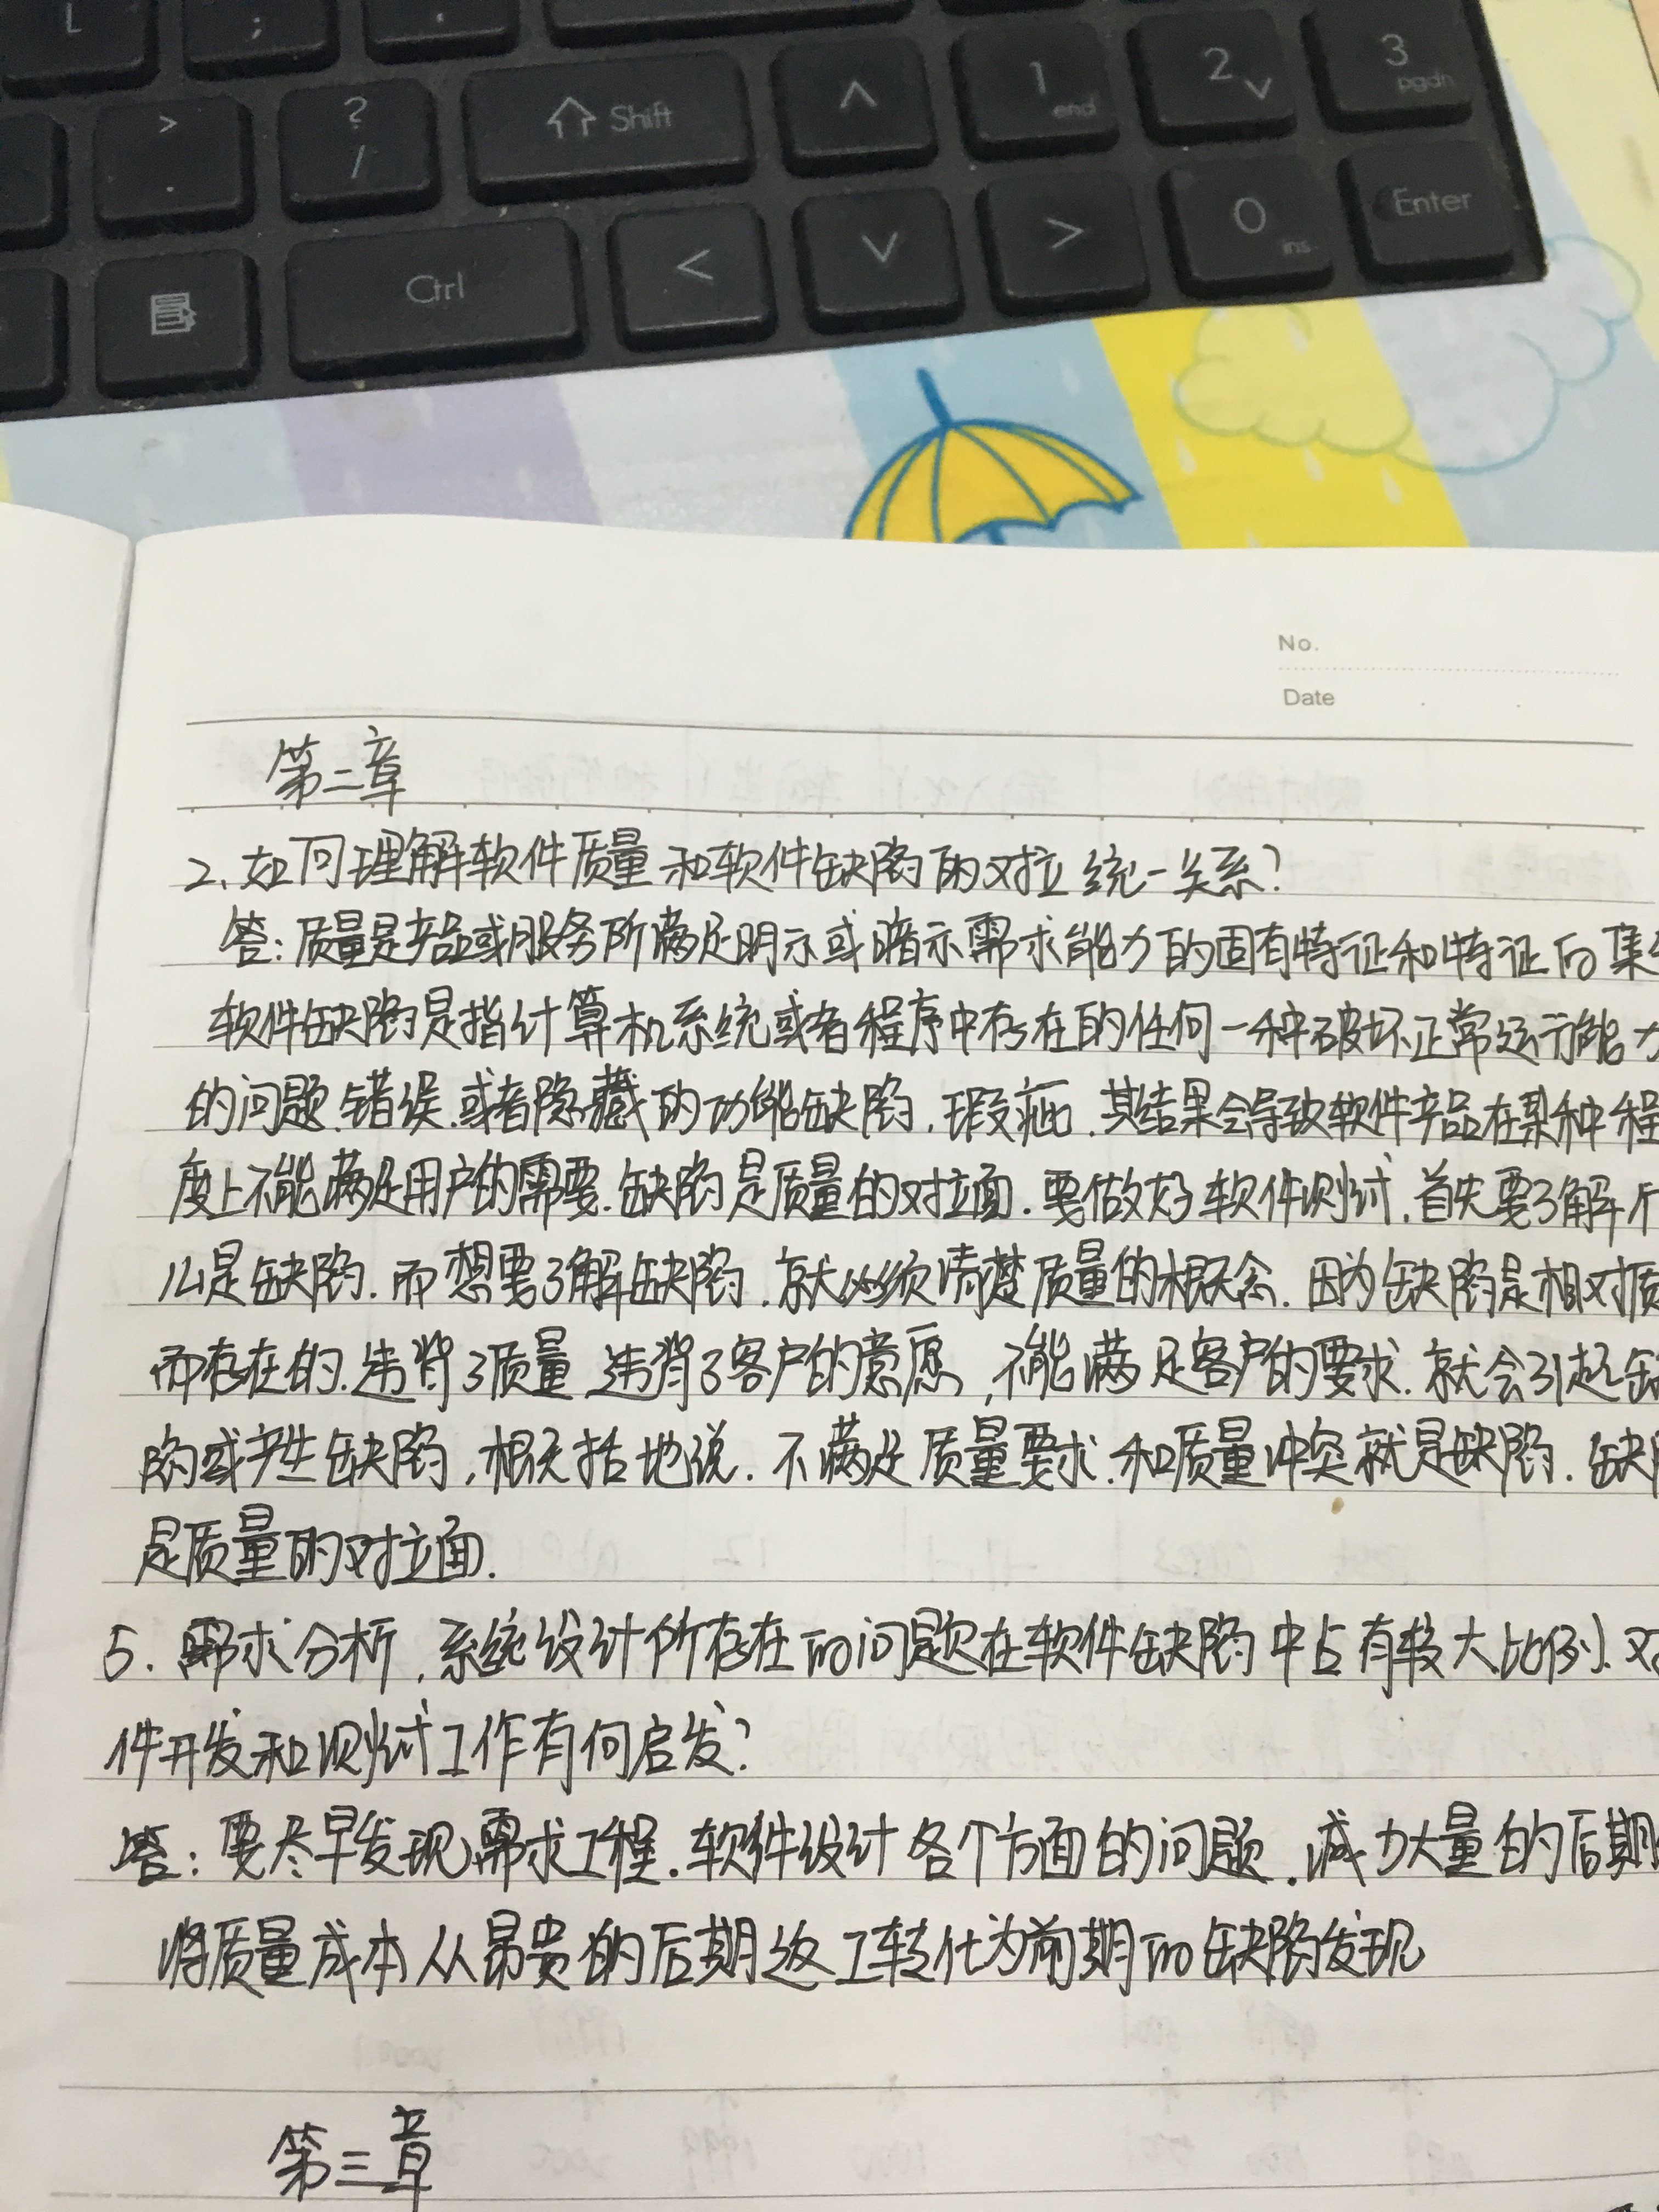 L
;
1 end
2
3 pgdn
>
.
?
/
Shift
0 ins
Enter
Ctrl
No.
Date
第二章
2.如何理解软件质量和软件缺陷的对立统一关系?
答:质量是产品或服务所满足明示或暗示需求能力的固有特征和特征的集
软件缺陷是指计算机系统或者程序中存在的任何一种破坏正常运行能力
的问题.错误.或者隐藏的功能缺陷,瑕疵.其结果会导致软件产品在某种程
度上不能满足用户的需要.缺陷是质量的对立面.要做好软件测试,首先要了解什
么是缺陷.而想要了解缺陷,就必须清楚质量的概念.因为缺陷是相对质
而存在的.违背了质量,违背了客户的意愿,不能满足客户的要求.就会引起缺
陷或产生缺陷,概括地说.不满足质量要求.和质量冲突就是缺陷.缺
是质量的对立面.
5.需求分析,系统设计所存在的问题在软件缺陷中占有较大比例.对
件开发和测试工作有何启发?
答:要尽早发现需求工程.软件设计各个方面的问题.减少大量的后期
将质量成本从昂贵的后期返工转化为前期的缺陷发现
第三章